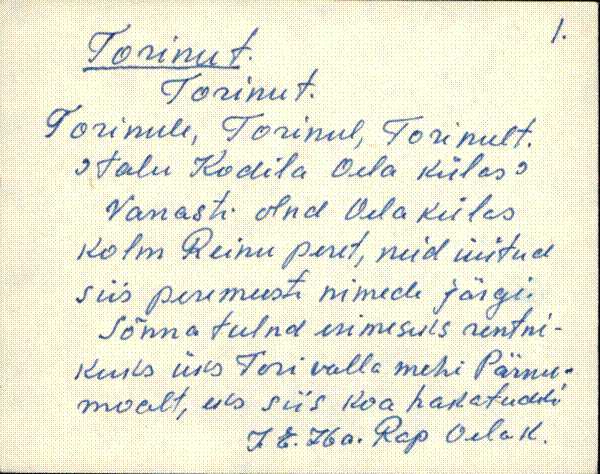 1.
Torinut.
Torinut.
Torinule, Torinul, Torinult.
talu Kodila Oela külas
Vanasti olnd Oela külas
kolm Reinu peret, neid üitud
siis peremeeste nimede järgi.
Sõnna tulnd esimeseks rentni-
kuks üks Tori valla mehi Pärnu-
moalt, eks siis koa hakatudki
Rap Oela k.